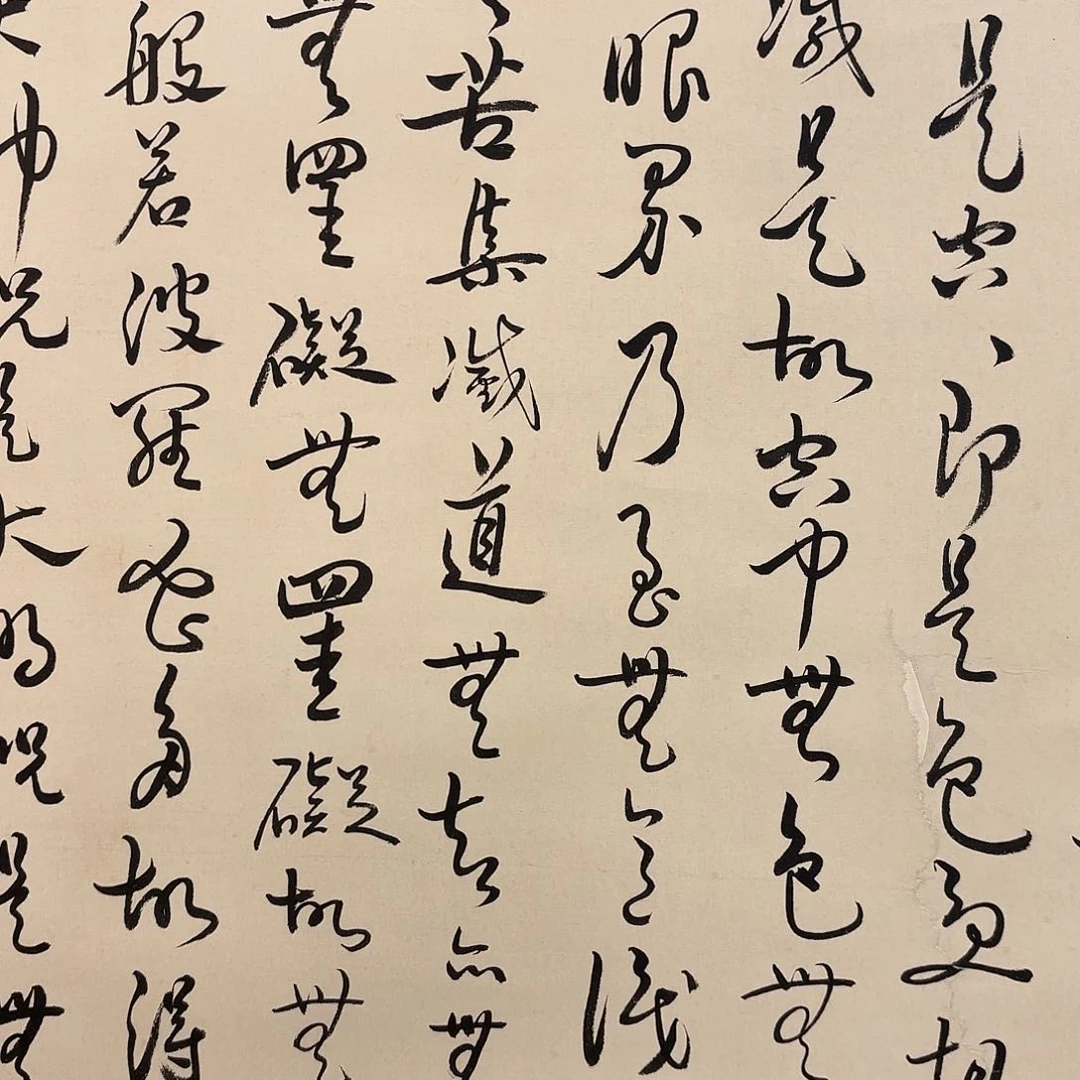 是空丶即是色受想
減是故空中無色無
眼界乃至無意識
苦集滅道無智亦無
無罣礙無罣礙故無
般若波羅蜜多故得
大神呪是大明呪是無